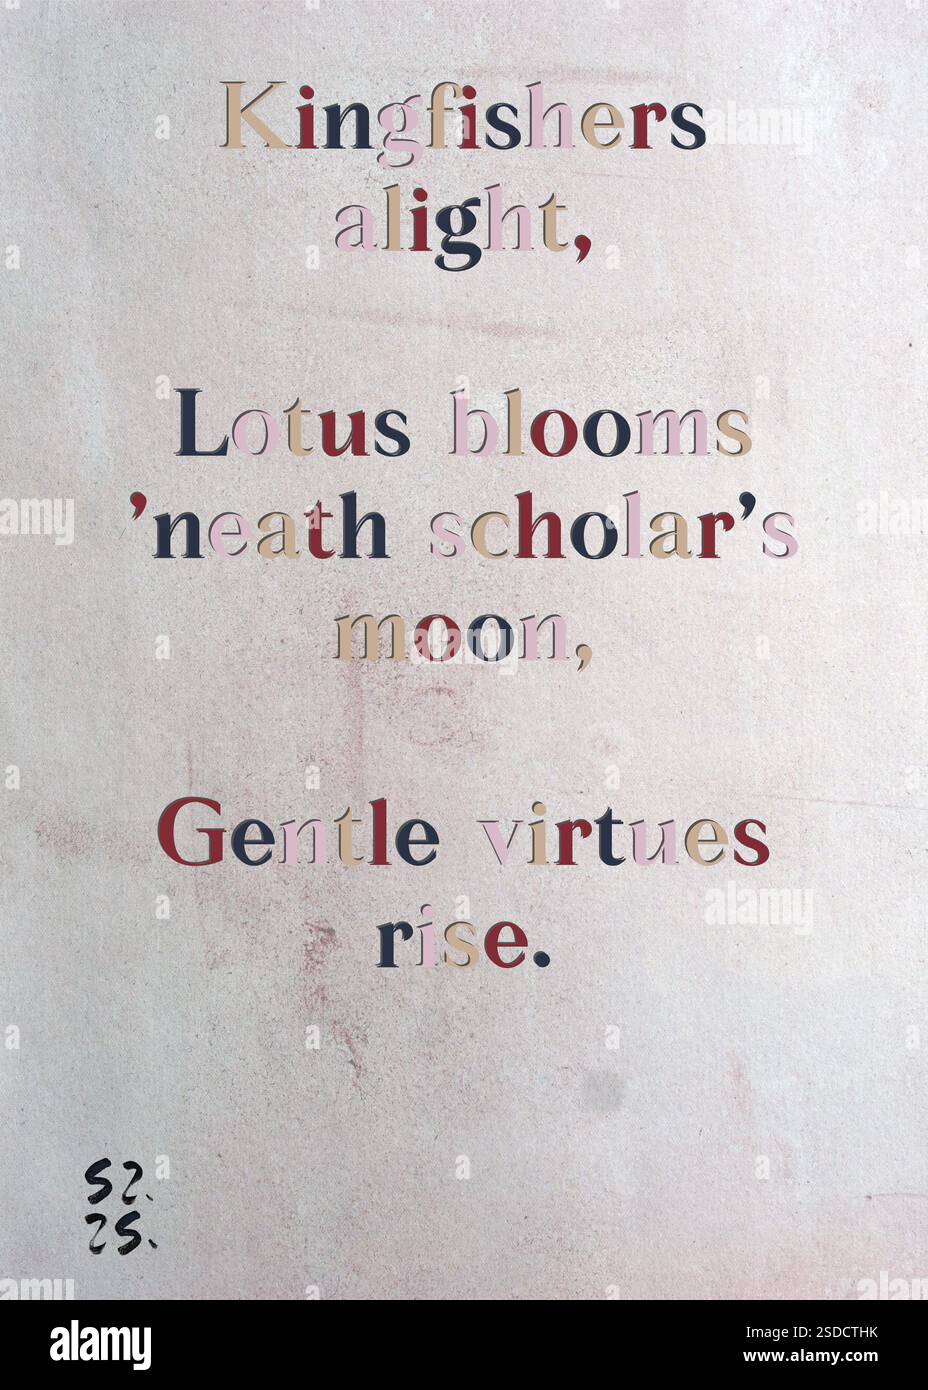 Kingfishers
alight,
Lotus blooms
’neath scholar’s
moon,
Gentle virtues
rise.
SZ.
25.
alamy
Image ID: 2SDCTHK
www.alamy.com